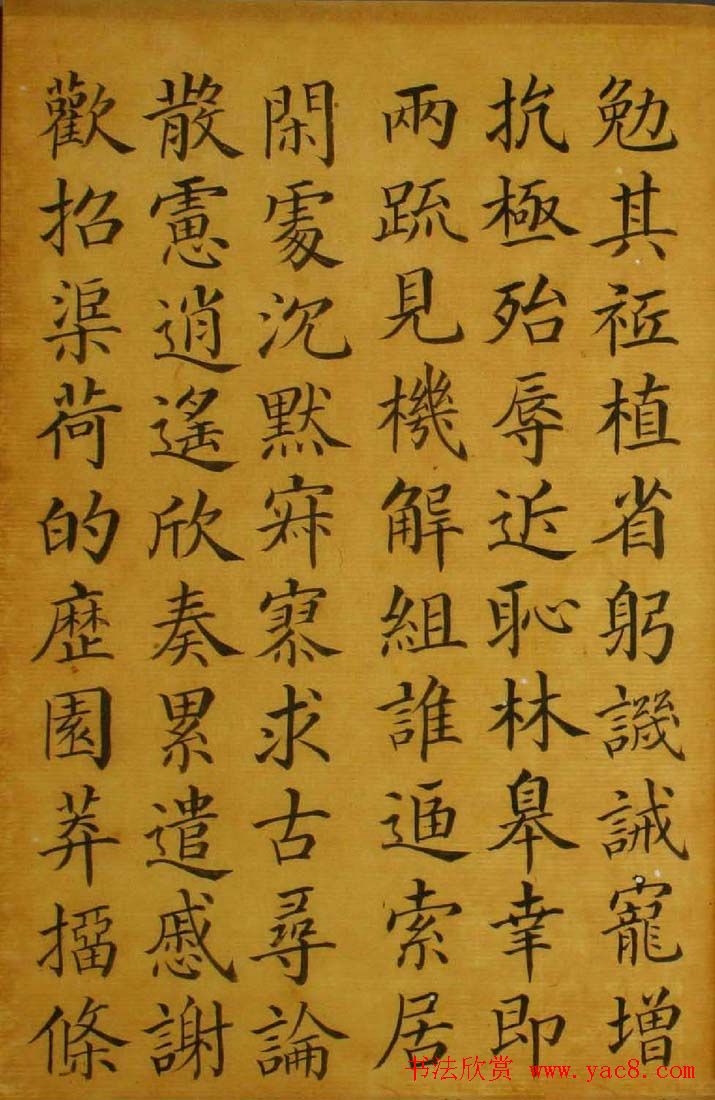 勉其祗植省躬譏誡寵增
抗極殆辱近恥林皋幸即
兩疏見機解組誰逼索居
閑處沉默寂寥求古尋論
散慮逍遙欣奏累遣慼謝
歡招渠荷的歷園莽擂條
书法欣赏 www.yac8.com